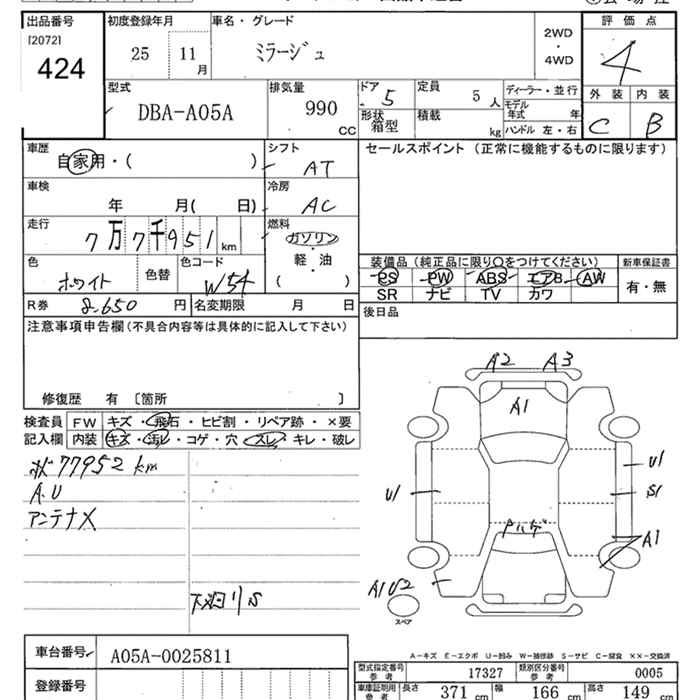 出品番号 初度登録年月 車名・グレード 評価点
[2072] 25 11月 ミラージュ 2WD・4WD 4
424 外装 内装
型式 排気量 ドア 定員 ディーラー・並行
DBA-A05A 990 CC 5 5人 モデル年式 年 C B
形状 箱型 積載 kg ハンドル 左・右
車歴 シフト セールスポイント (正常に機能するものに限ります)
自家用・( ) AT
車検 冷房
年 月( 日) AC
走行 燃料
7万7千951km ガソリン
色 色コード 軽・油 装備品 (純正品に限り〇をつけてください) 新車保証書
ホワイト 色替 W54 ( ) PS PW ABS エアB AW 有・無
SR ナビ TV カワ
R券 8,650円 名変期限 月 日 後日品
注意事項申告欄(不具合内容等は具体的に記入して下さい)
修復歴 有 〔箇所 〕
検査員 FW キズ・飛石・ヒビ割・リペア跡・×要
記入欄 内装 キズ・汚レ・コゲ・穴・スレ・キレ・破レ
77952km
A.U
アンテナX
下廻りS
A2 A3
A1
U1
U1
S1
A1
A1 U2
スペア
A-キズ E-エクボ U-凹み W-補修跡 S-サビ C-腐食 ××-交換済
車台番号 A05A-0025811
登録番号
型式指定番号 参考 17327 類別区分番号 参考 0005
車庫証明用 参考 長さ 371cm 幅 166cm 高さ 149cm